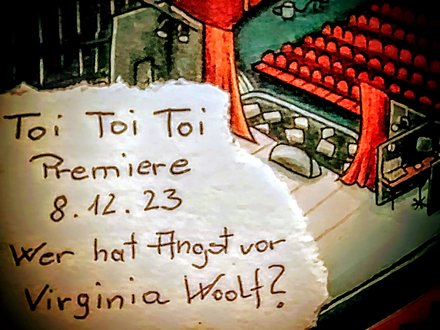 Toi Toi Toi
Premiere
8.12.23
Wer hat Angst vor
Virginia Woolf?